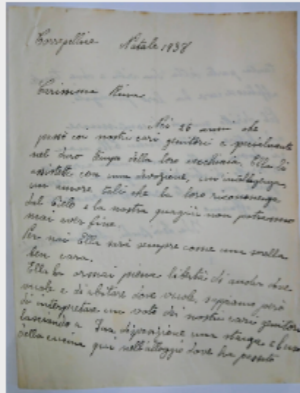 Torrepellice Natale 1938
Carissima
Nei 26 anni che
passò con nostri cari genitori e specialmente
nel loro tempo della loro vecchiaia, Ella li
assistete con una devozione, un'
un amore tali che la loro riconoscenza
dal Cielo e la nostra quaggiù non potranno
mai aver fine.
Per noi Ella sarà sempre come una sorella
ben cara.
Ella ha ormai piena libertà di andar dove
vuole e di abitare dove vuole, sappiamo però
di interpretare un voto dei nostri cari genitori
lasciando a Sua disposizione una
della cucina qui nell'alloggio dove ha passato